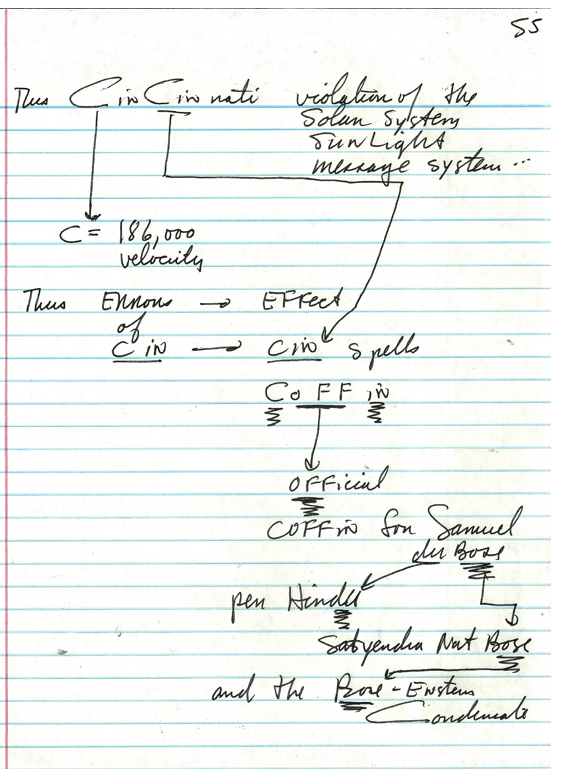 55
Thus CinCinnati violation of the
Solar System
SunLight
message system ...
C = 186,000
velocity
Thus Errors → EFFect
of
Cin → Cin spells
CoFFin
OFFicial
COFFin for Samuel
du Bose
per Hindu
Satyendra Nat Bose
and the Bose-Einstein
Condensate